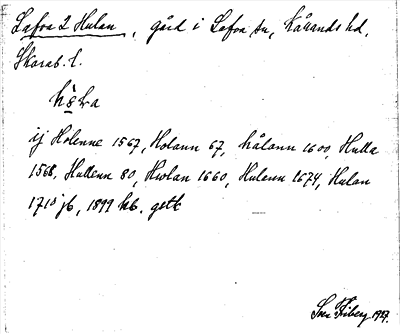 Lafva 2 Hulan, gård i Lafva sn, Kåkinds hd,
Skarab. l.
ij Holenne 1567, Holann 67, hålann 1600, Hulla
1568, Hullenn 80, Hwlan 1660, Hulenn 1674, Hulan
1710 jb, 1899 kb. getk
Ivar Friberg 1927.